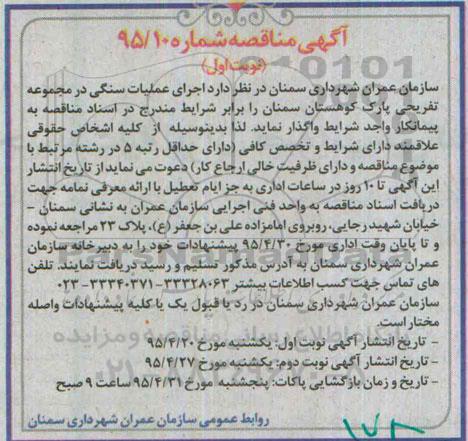 آگهی مناقصه شماره ۹۵/۱۰
(نوبت اول)
سازمان عمران شهرداری سمنان در نظر دارد اجرای عملیات سنگی در مجموعه
تفریحی پارک کوهستان سمنان را برابر شرایط مندرج در اسناد مناقصه به
پیمانکار واجد شرایط واگذار نماید. لذا بدینوسیله از کلیه اشخاص حقوقی
علاقمند دارای شرایط و تخصص کافی (دارای حداقل رتبه ۵ در رشته مرتبط با
موضوع مناقصه و دارای ظرفیت خالی ارجاع کار) دعوت می نماید از تاریخ انتشار
این آگهی تا ۱۰ روز در ساعات اداری به جز ایام تعطیل با ارائه معرفی نامه جهت
دریافت اسناد مناقصه به واحد فنی اجرایی سازمان عمران به نشانی سمنان -
خیابان شهید رجایی، روبروی امامزاده علی بن جعفر (ع)، پلاک ۲۳ مراجعه نموده
و تا پایان وقت اداری مورخ ۹۵/۴/۳۰ پیشنهادات خود را به دبیرخانه سازمان
عمران شهرداری سمنان به آدرس مذکور تسلیم و رسید دریافت نمایند. تلفن های
های تماس جهت کسب اطلاعات بیشتر ۳۳۳۲۸۰۶۳-۳۳۳۴۰۳۷۱-۰۲۳
سازمان عمران شهرداری سمنان در رد یا قبول یک یا کلیه پیشنهادات واصله
مختار است.
- تاریخ انتشار آگهی نوبت اول: یکشنبه مورخ ۹۵/۴/۲۰
- تاریخ انتشار آگهی نوبت دوم: یکشنبه مورخ ۹۵/۴/۲۷
- تاریخ و زمان بازگشایی پاکات: پنجشنبه مورخ ۹۵/۴/۳۱ ساعت ۹ صبح
روابط عمومی سازمان عمران شهرداری سمنان
۱۷۸